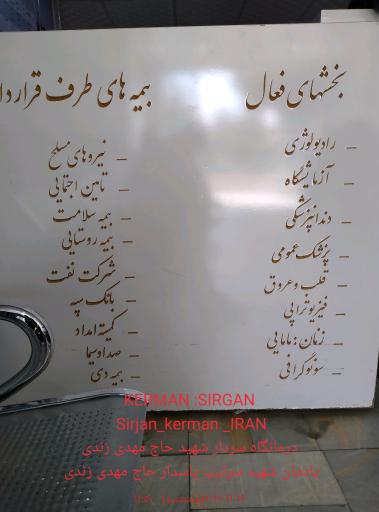 بخشهای فعال
رادیولوژی
آزمایشگاه
دندانپزشکی
پزشک عمومی
قلب و عروق
فیزیوتراپی
زنان و مامایی
سونوگرافی
بیمه های طرف قرارداد
نیروهای مسلح
تامین اجتماعی
بیمه سلامت
بیمه روستایی
شرکت نفت
بانک سپه
کمیته امداد
صدا و سیما
بیمه دی
KERMAN :SIRGAN
Sirjan_kerman _IRAN
درمانگاه سردار شهید حاج مهدی زندی
شهید
پاسدار حاج مهدی زندی